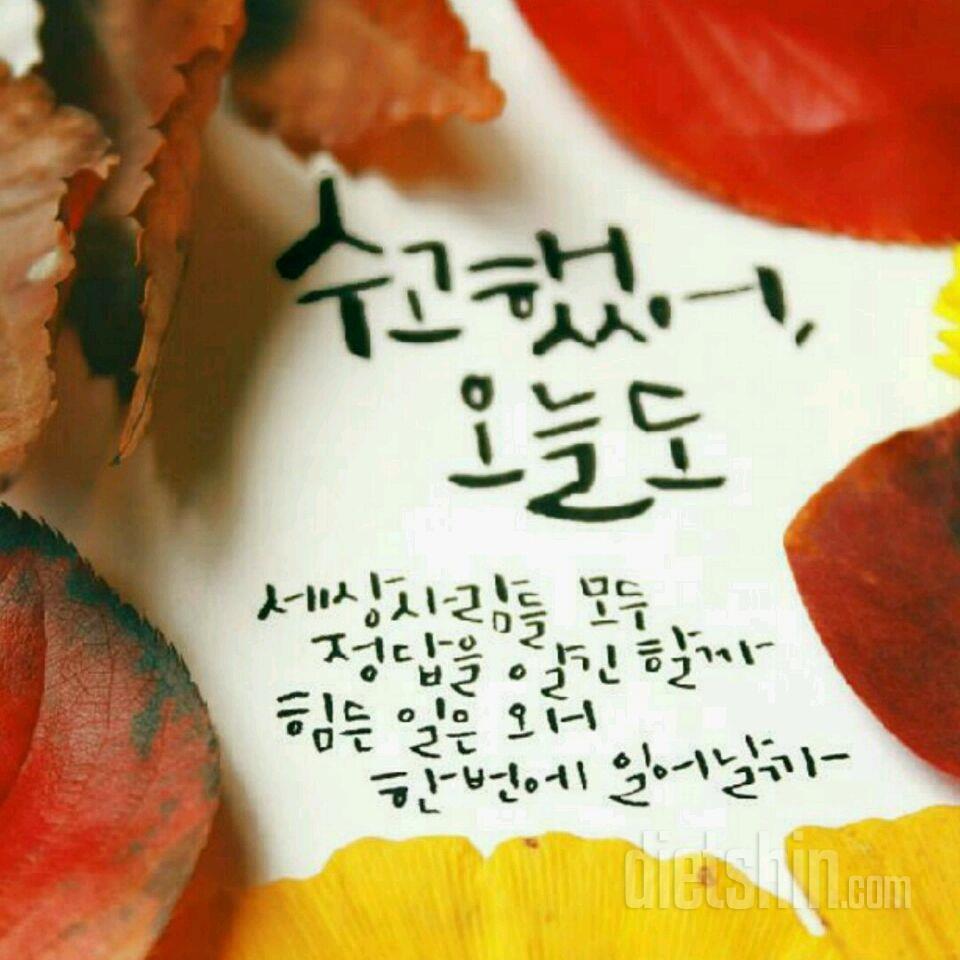 수고했어,
오늘도
세상사람들 모두
정답을 알긴 할까
힘든 일은 왜
한번에 일어날까
dietshin.com